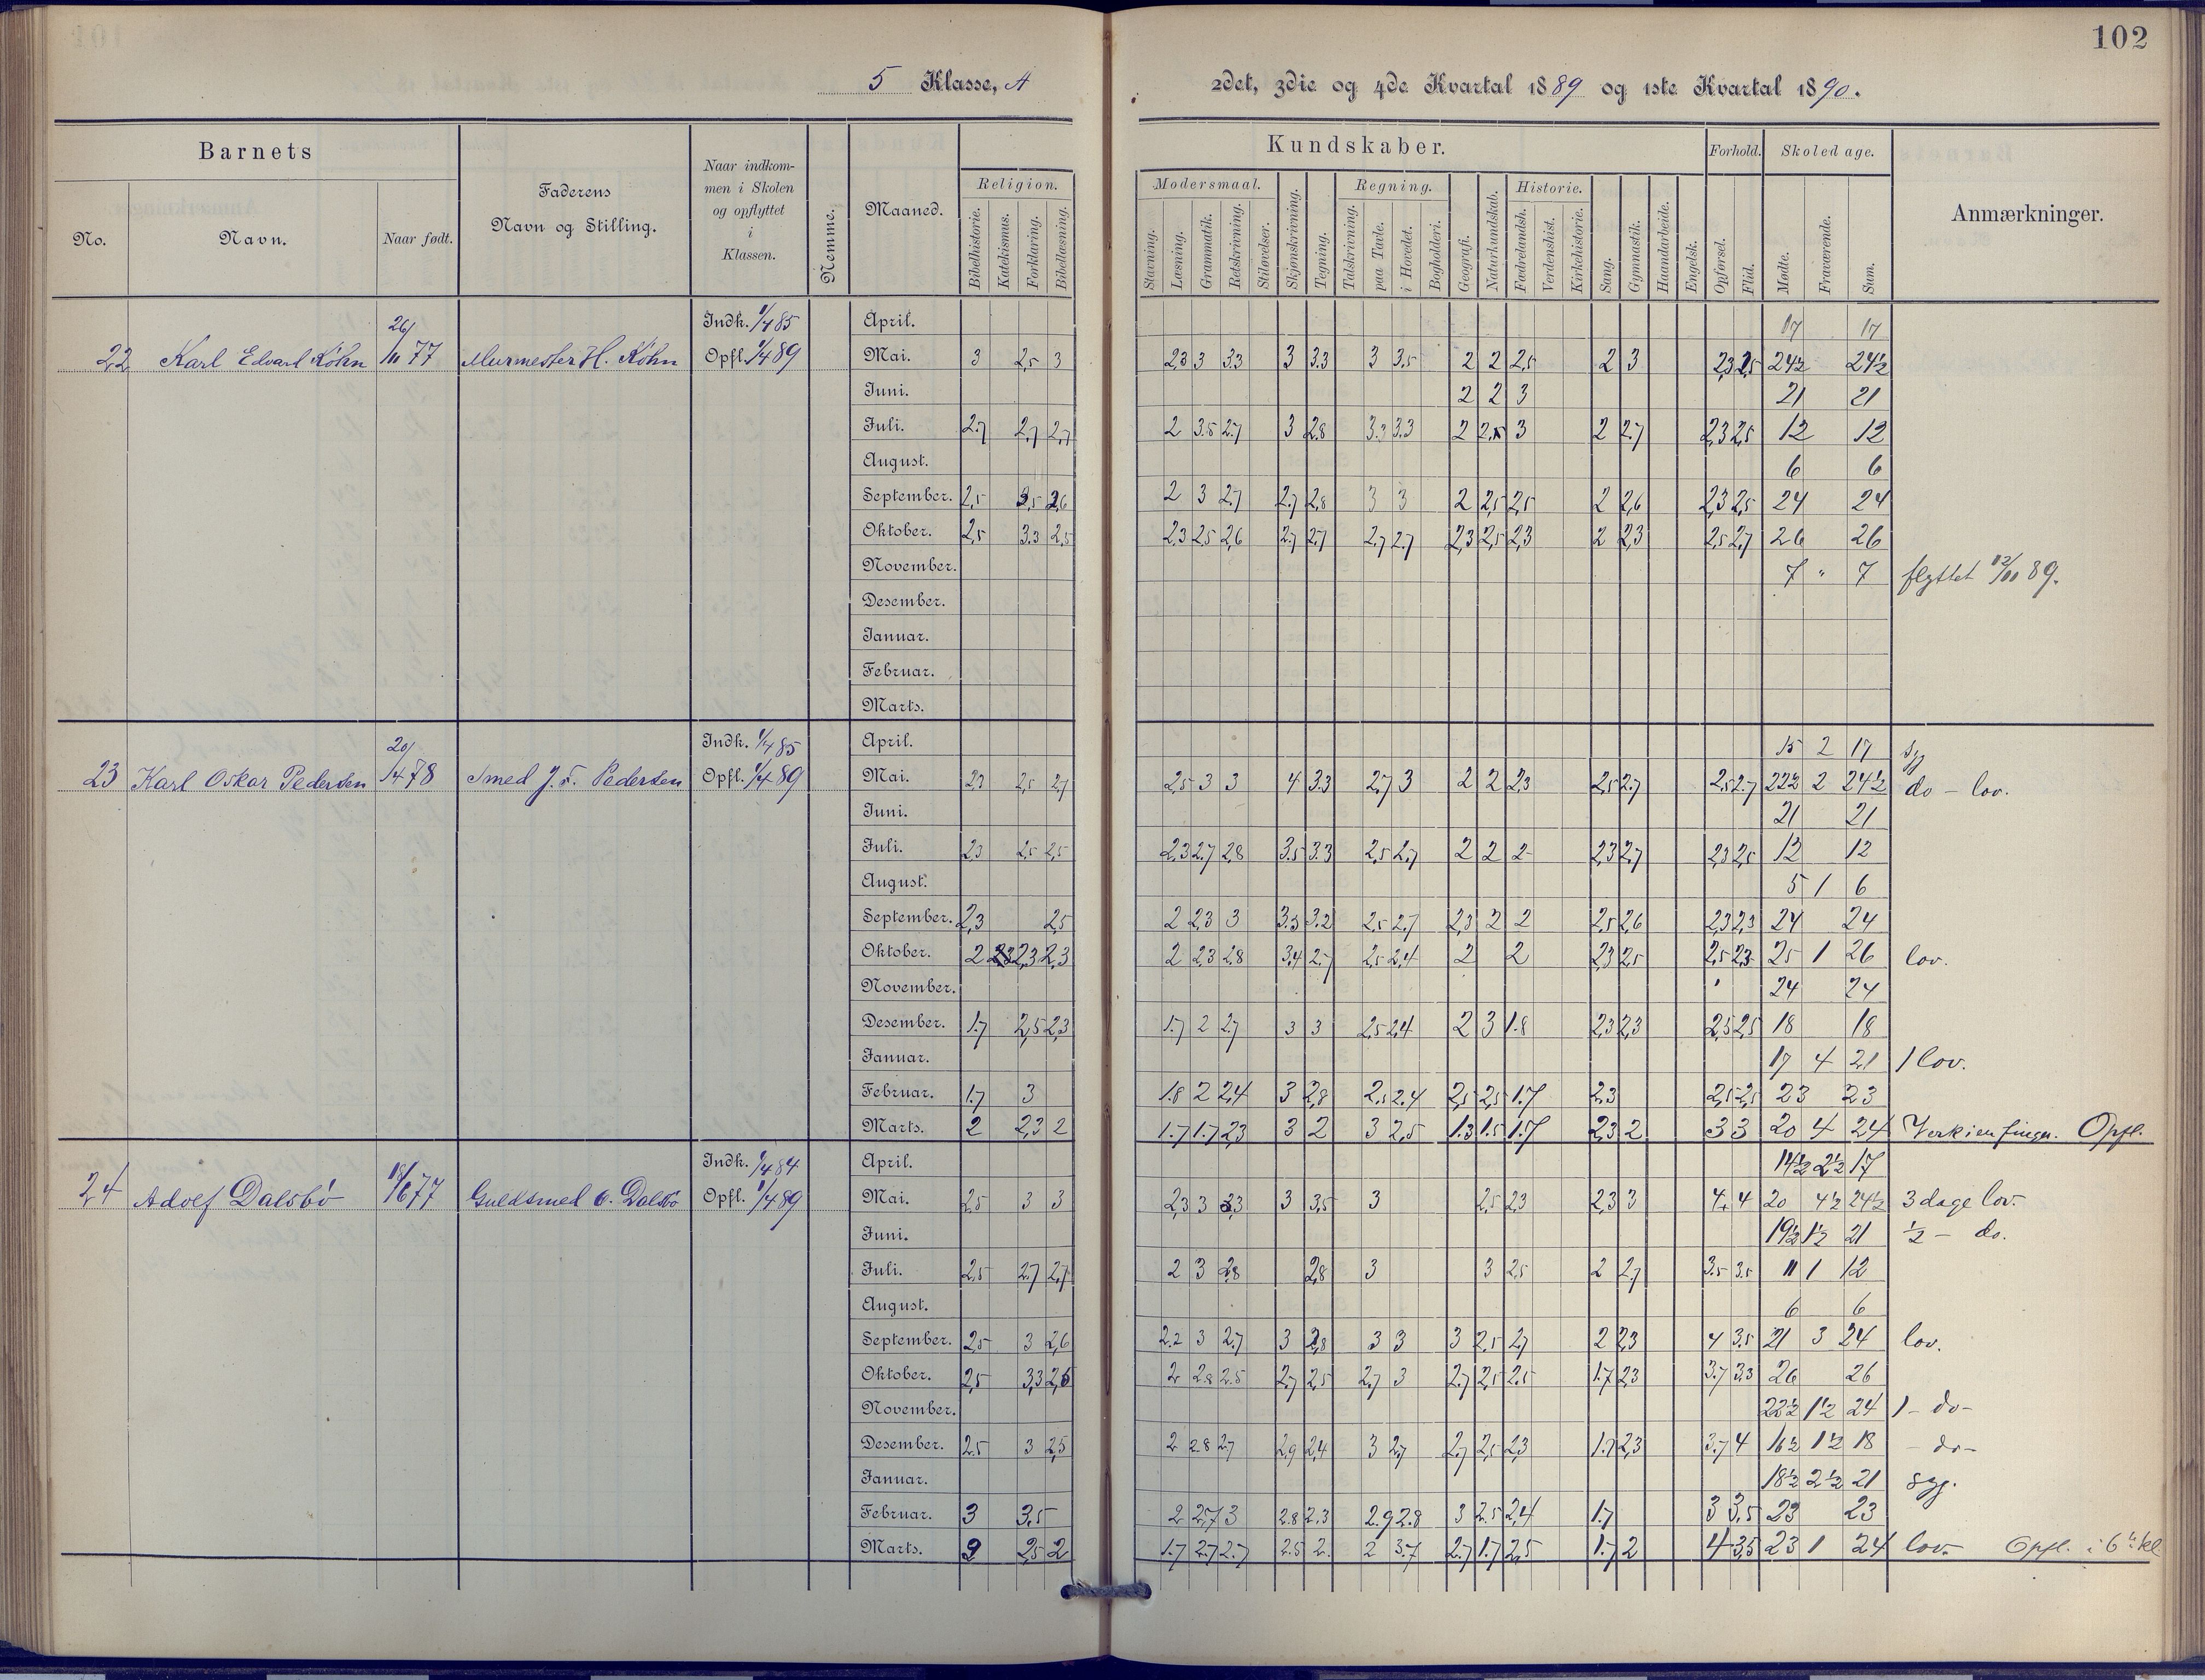 102
5 Klasse, A
2det, 3die og 4de Kvartal 1889 og 1ste Kvartal 1890.
Barnets
No.
Navn.
Naar født.
Faderens
Navn og Stilling.
Naar indkom-
men i Skolen
og opflyttet
i
Klassen.
Nemme.
Maaned.
Kundskaber.
Religion.
Bibelhistorie.
Katekismus.
Forklaring.
Bibellæsning.
Modersmaal.
Stavning.
Læsning.
Grammatik.
Retskrivning.
Stiløvelser.
Skjønskrivning.
Tegning.
Regning.
Talskrivning.
paa Tavle.
i Hovedet.
Bogholderi.
Geografi.
Naturkundskab.
Historie.
Fædrelandsh.
Verdenshist.
Kirkehistorie.
Sang.
Gymnastik.
Haandarbeide.
Engelsk.
Forhold.
Opførsel.
Flid.
Skoledage.
Mødte.
Fraværende.
Sum.
Anmærkninger.
22 Karl Edvard Köhn 26/11 77 Murmester H. Köhn
Indk. 1/4 85
Opfl. 1/4 89
April. 17 17
Mai. 3 2,5 3 2,3 3 3.3 3 3.3 3 3.5 2 2 2,5 2 3 2,3 2,5 24½ 24½
Juni. 2 2 3 21 21
Juli. 2.7 2,7 2,7 2 3.5 2.7 3 2.8 3.3 3.3 2 3 2 2.7 2,3 2,5 12 12
August. 6 6
September. 2,5 2,6 2 3 2.7 2.7 2,8 3 3 2 2,5 2,5 2 2,6 2,3 2,5 24 24
Oktober. 2,5 3.3 2,5 2,3 2,5 2,6 2.7 2.7 2.7 2.7 2,3 2,5 2,3 2 2,3 2,5 2,7 26 26
November. 7 " 7 flyttet 12/11 89.
Desember.
Januar.
Februar.
Marts.
23 Karl Oskar Pedersen 20/4 78 Smed J. F. Pedersen
Indk. 1/4 85
Opfl. 1/4 89
April. 15 2 17 syg
Mai. 2,3 2,5 2,7 2,5 3 3 4 3.3 2,7 3 2 2 2,3 2,5 2.7 2,5 2.7 22½ 2 24½ do - lov.
Juni. 21 21
Juli. 2,3 2,5 2,5 2,3 2.7 2,8 3.5 3.3 2,5 2,7 2 2 2 2,3 2,7 2,3 2,5 12 12
August. 5 1 6
September. 2,3 2,5 2 2,3 3 3.3 3.2 2,5 2.7 2,3 2 2 2,5 2,6 2,3 2,3 24 24
Oktober. 2 2,3 2,3 2 2,3 2,8 3,4 2.7 2,5 2,4 2 2 2,3 2,5 2,5 2,3 25 1 26 lov.
November. 24 24
Desember. 1.7 2,5 2,3 1.7 2 2.7 3 3 2,5 2,4 2 3 1.8 2,3 2,3 2,5 2,5 18 18
Januar. 17 4 21 1 lov.
Februar. 1.7 3 1.8 2 2,4 3 2,8 2,5 2.4 2,5 2,5 1.7 2,3 2,5 2,5 23 23
Marts. 2 2,3 2 1.7 1.7 2,3 3 2 3 2,5 1.3 1.5 1.7 2,3 2 3 3 20 4 24 Verk i en finger. Opfl.
24 Adolf Dalsbö 18/6 77 Guldsmed O. Dalsbö
Indk. 1/4 84
Opfl. 1/4 89
April. 14½ 2½ 17
Mai. 2,5 3 3 2,3 3 3,3 3 3,5 3 2,5 2,3 2,3 3 4 4 20 4½ 24½ 3 dage lov.
Juni. 19½ 1½ 21 ½ - do.
Juli. 2,5 2.7 2,7 2 3 2,8 2,8 3 3 2,5 2 2,7 3.5 3.5 11 1 12
August. 6 6
September. 2,5 3 2,6 2.2 3 2.7 3 2,8 3 3 3 2,5 2,7 2 2,3 4 3.5 21 3 24 lov.
Oktober. 2,5 3,3 2,5 2 2.8 2.5 2,7 2,5 2,7 3 2.7 2,5 2.5 1.7 2,3 3.7 3,3 26 26
November. 22½ 1½ 24 1 - do -
Desember. 2.5 3 2,5 2 2.8 2.7 2,9 2,4 3 2,7 2,7 2,5 2,3 1.7 2,3 3.7 4 16½ 1½ 18 - do -
Januar. 18½ 2½ 21 syg.
Februar. 3 3.5 2 2,7 3 2.8 2.3 2.9 2.8 3 2.5 2,4 1.7 3 3,5 23 23
Marts. 2 2,5 2 1.7 2.7 2.7 2.5 2. 2 3.7 2.7 1.7 2,5 1.7 2 4 3,5 23 1 24 lov. Opfl. i 6te kl